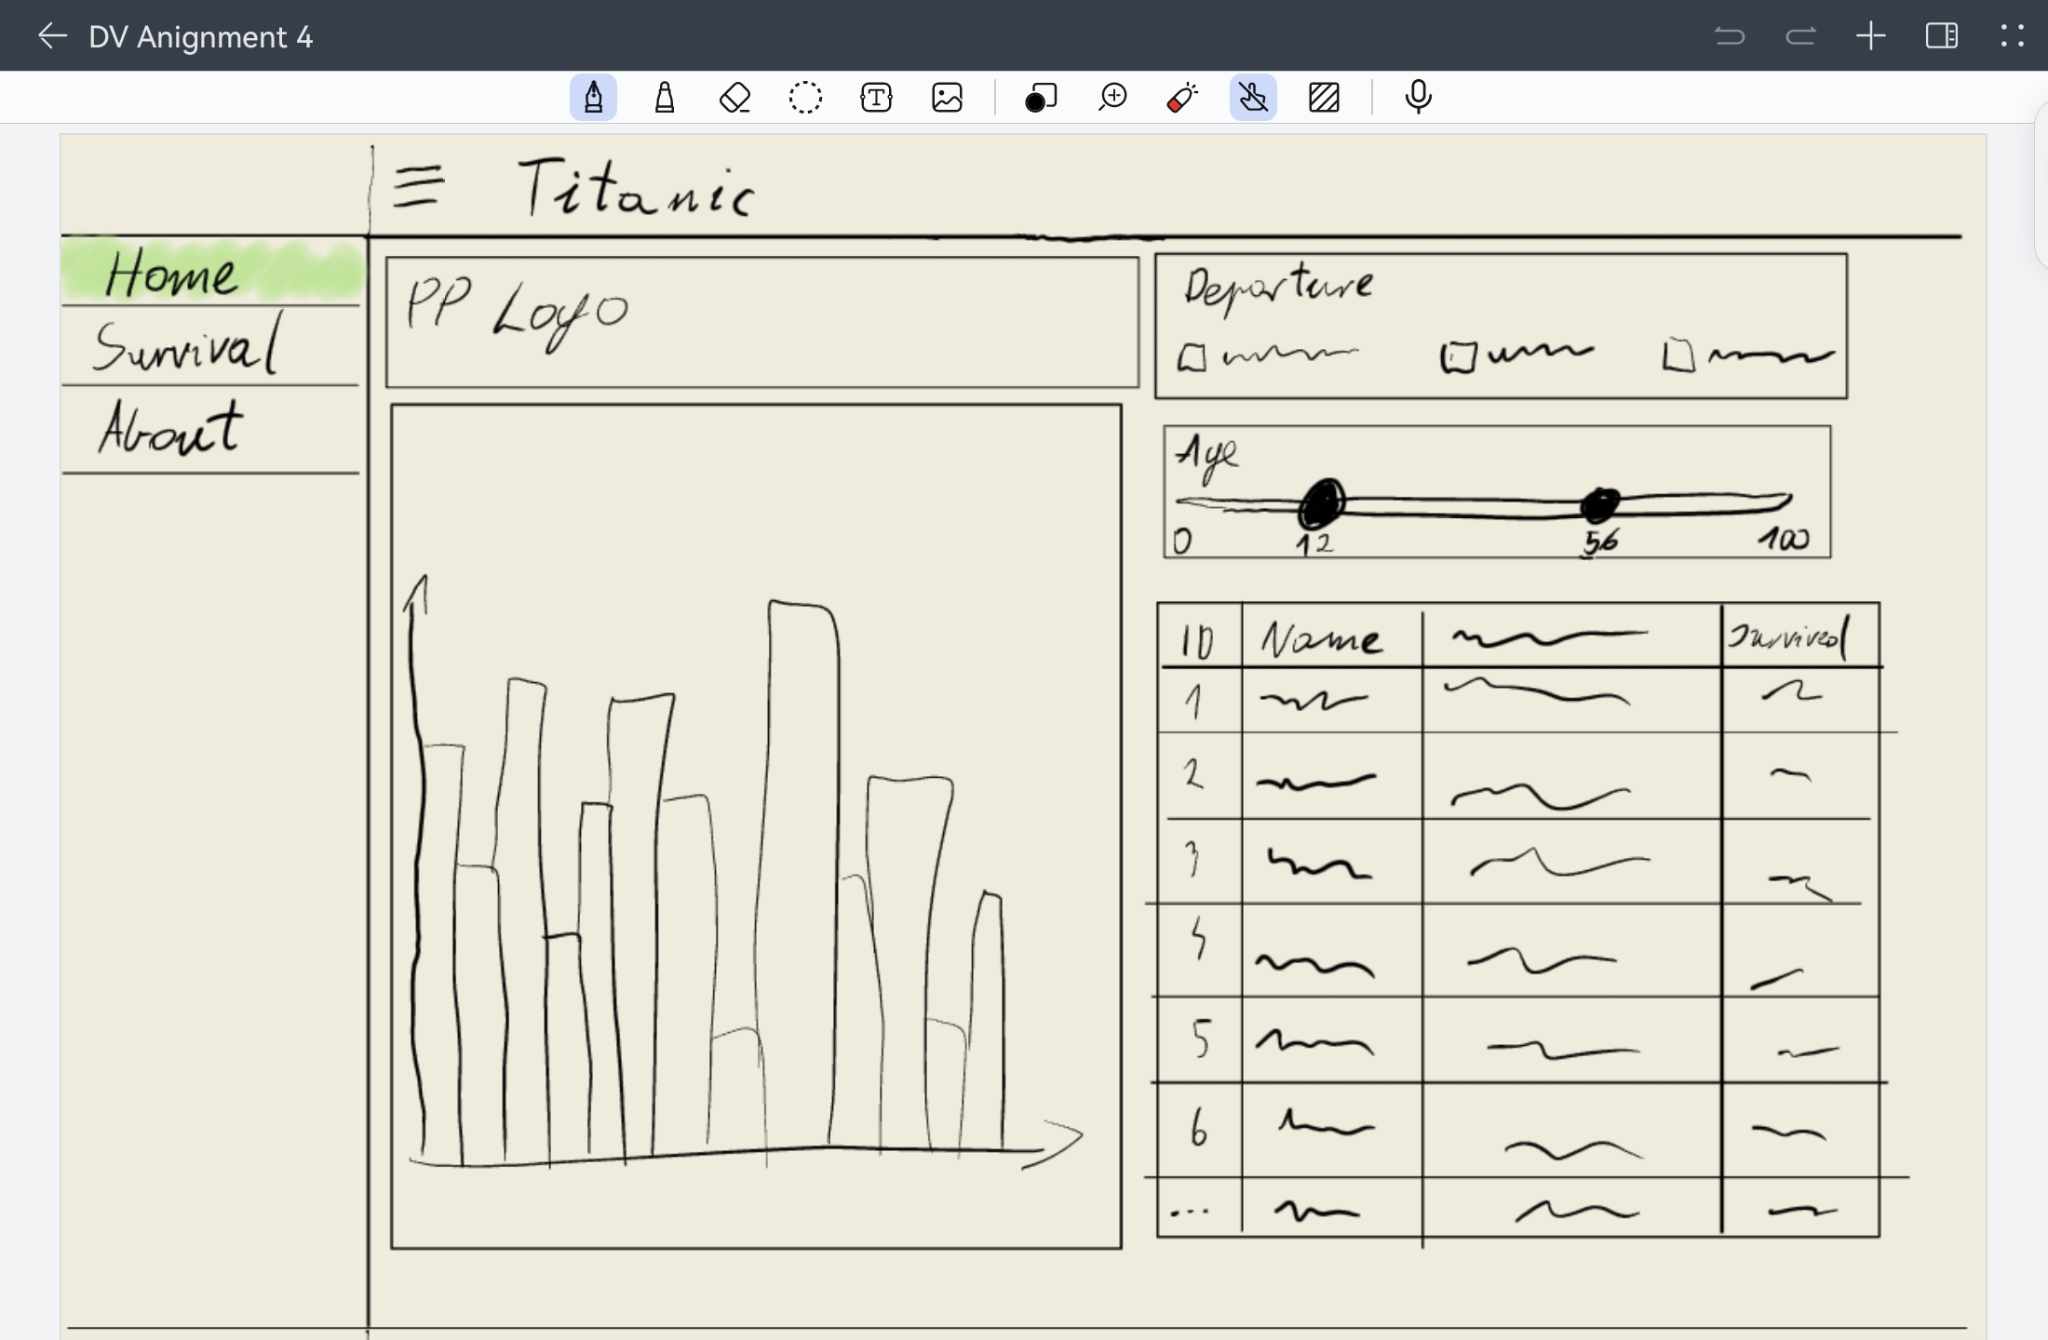 DV Anignment 4
Titanic
Home
Survival
About
PP Logo
Departure
Age
0 12 56 100
ID Name Survived
1
2
3
4
5
6
...